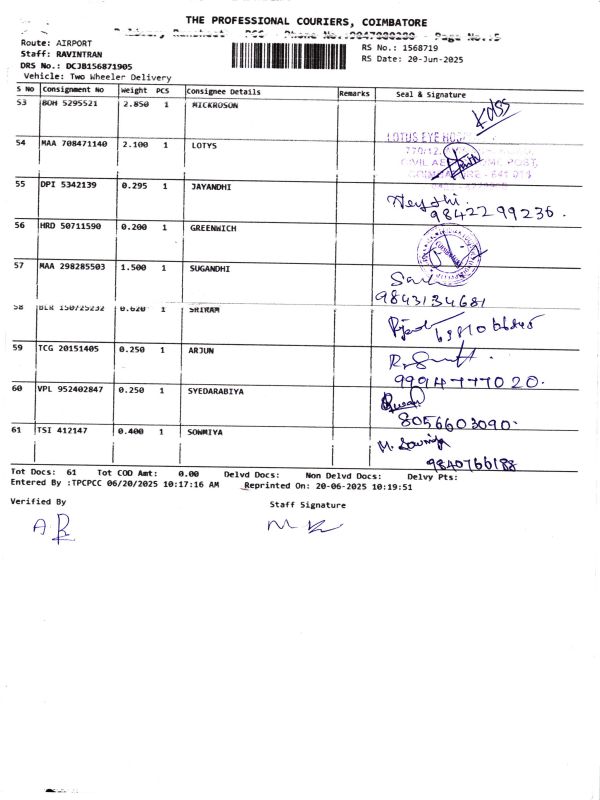 THE PROFESSIONAL COURIERS, COIMBATORE
Page No.:5
Route: AIRPORT
Staff: RAVINTRAN
DRS No.: DCJB156871905
Vehicle: Two Wheeler Delivery
RS No.: 1568719
RS Date: 20-Jun-2025
S No Consignment No Weight PCS Consignee Details Remarks Seal & Signature
53 BOH 5295521 2.850 1 MICKROSON
54 MAA 708471140 2.100 1 LOTYS
LOTUS EYE
55 DPI 5342139 0.295 1 JAYANDHI
9842299236.
56 HRD 50711590 0.200 1 GREENWICH
57 MAA 298285503 1.500 1 SUGANDHI
9843134681
58 BLR 150725232 0.620 1 SRIRAM
59 TCG 20151405 0.250 1 ARJUN
9994777020.
60 VPL 952402847 0.250 1 SYEDARABIYA
8056603090.
61 TSI 412147 0.400 1 SOWMIYA
M. Sowmiya
9840766188
Tot Docs: 61 Tot COD Amt: 0.00 Delvd Docs: Non Delvd Docs: Delvy Pts:
Entered By :TPCPCC 06/20/2025 10:17:16 AM Reprinted On: 20-06-2025 10:19:51
Verified By Staff Signature